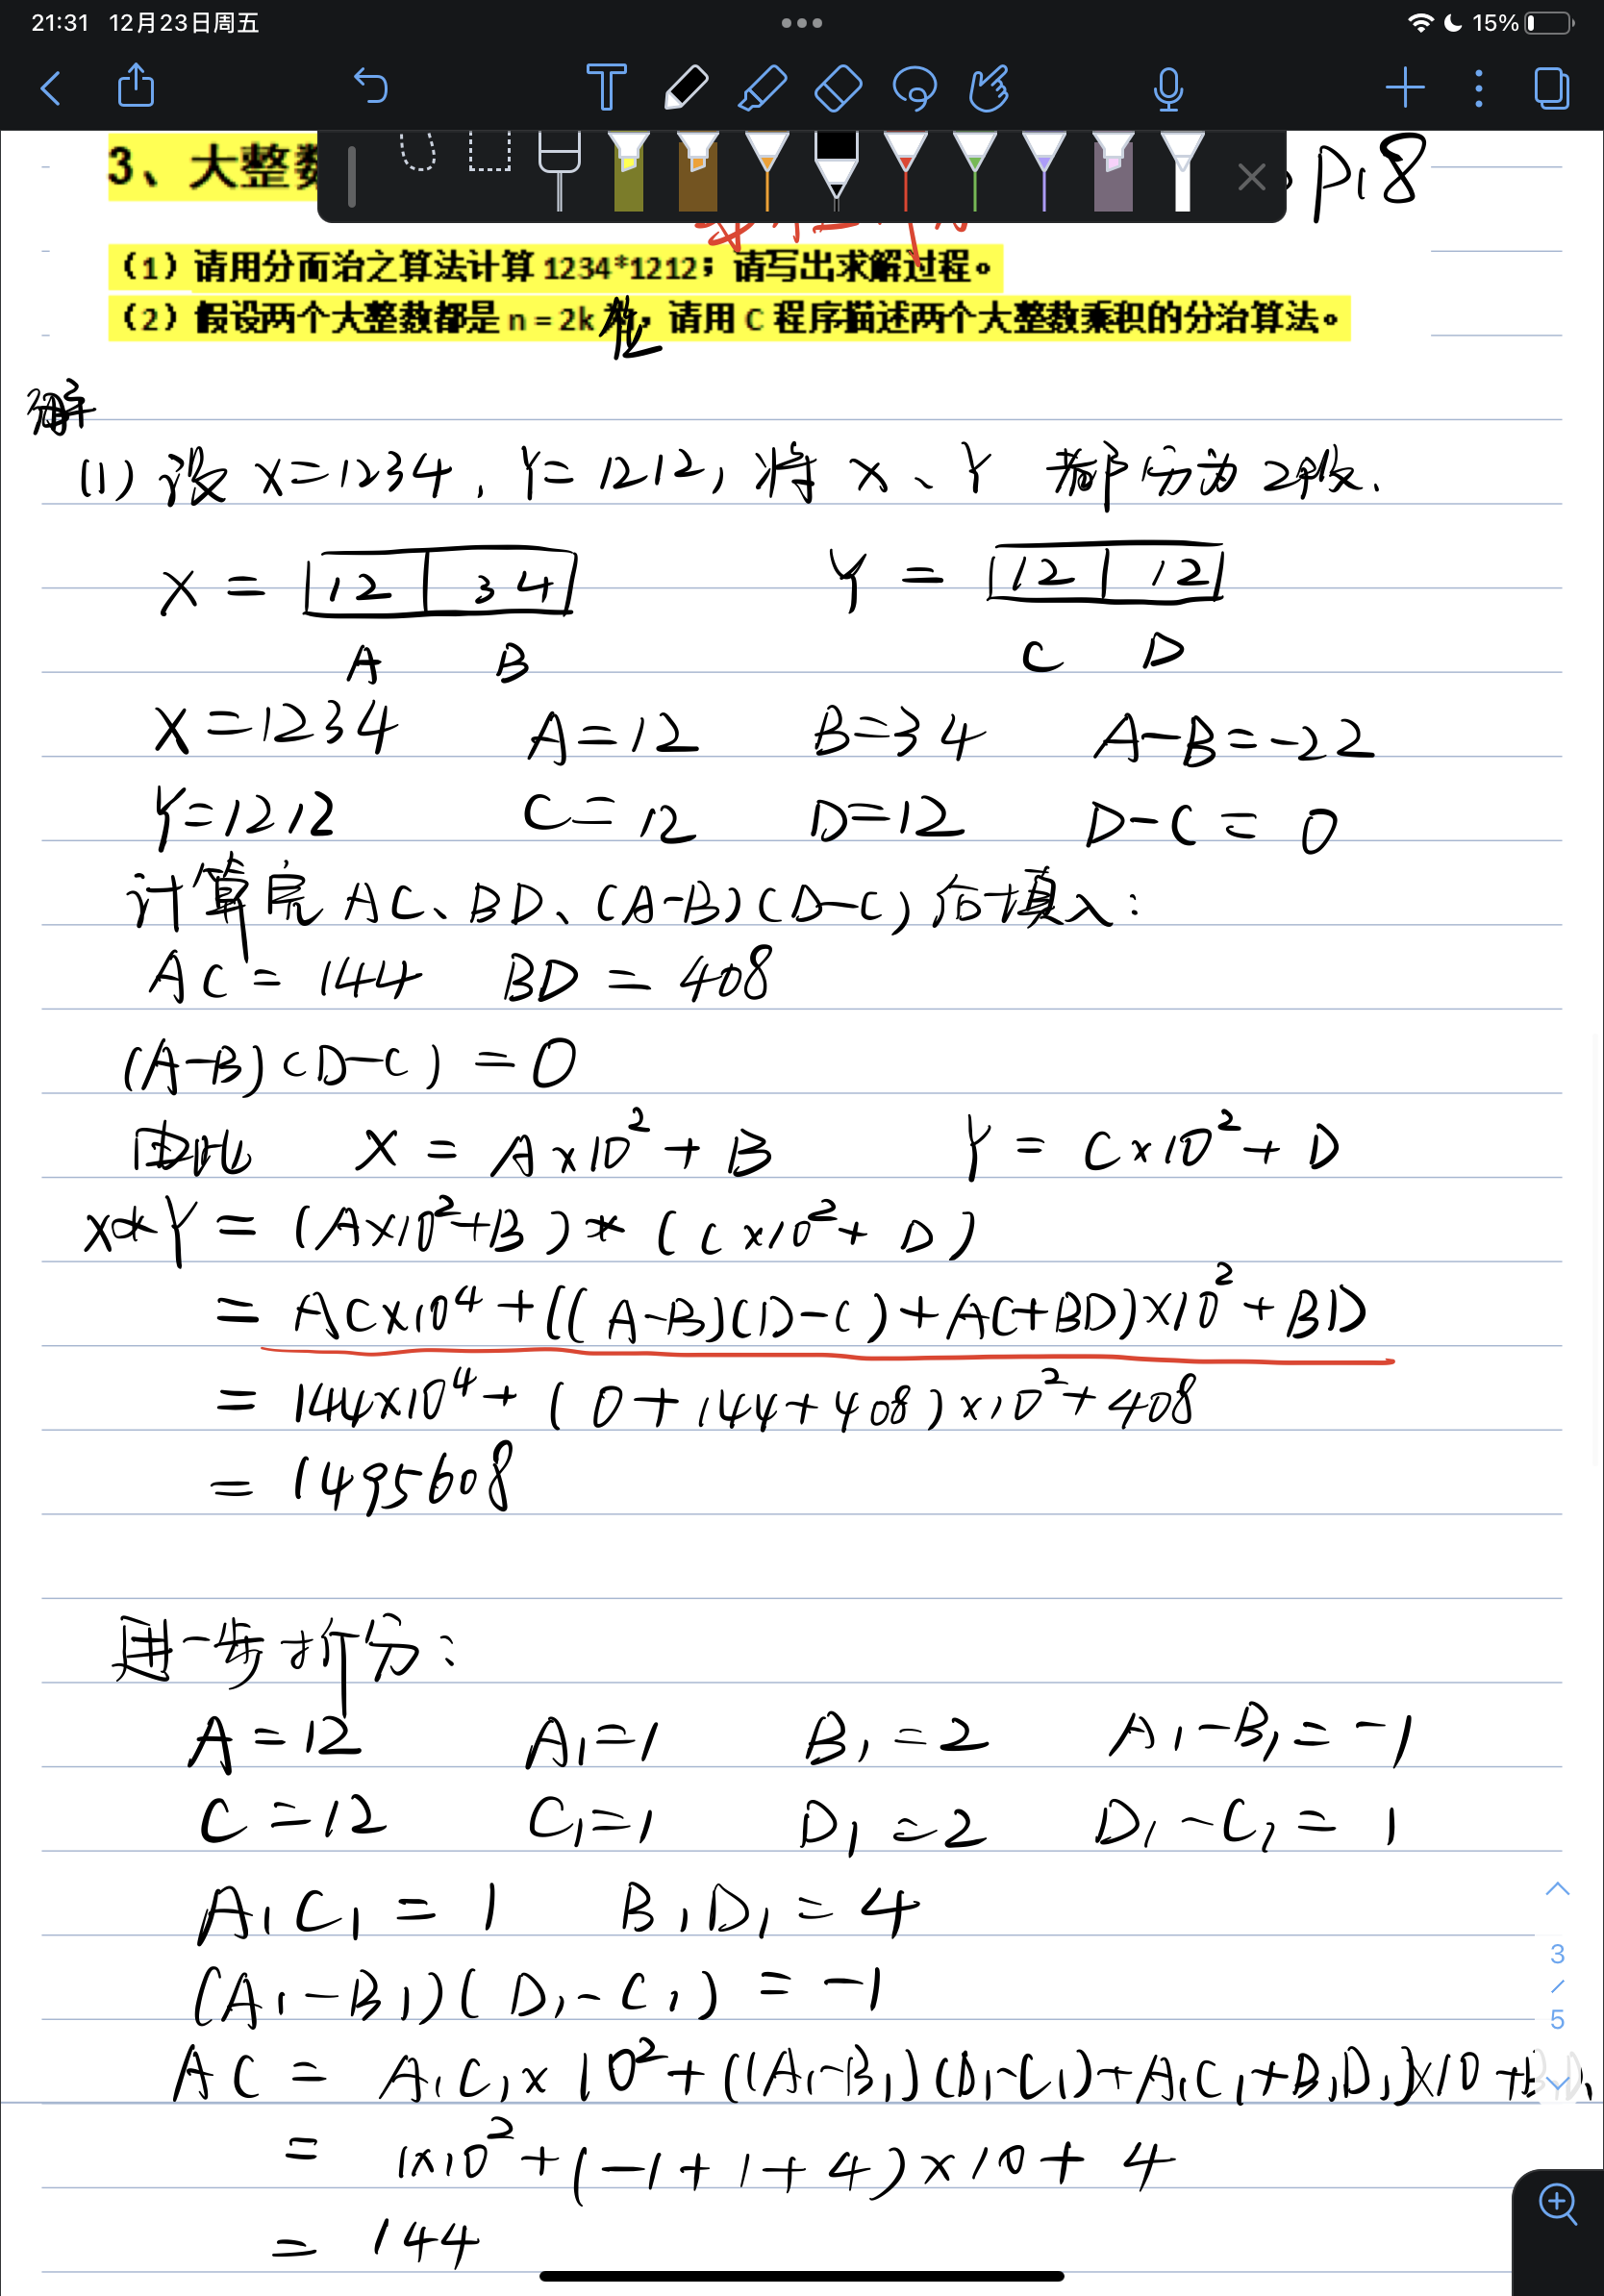 21:31 12月23日周五
15%
3、大整数
P18
（1）请用分而治之算法计算 1234*1212；请写出求解过程。
（2）假设两个大整数都是 n = 2k 位，请用 C 程序描述两个大整数乘积的分治算法。
解
(1) 设 X=1234, Y=1212, 将 X、Y 都分为2段.
X = 12 34 Y = 12 12
A B C D
X=1234 A=12 B=34 A-B=-22
Y=1212 C=12 D=12 D-C=0
计算完 AC、BD、(A-B)(D-C) 后填入:
AC = 144 BD = 408
(A-B)(D-C) = 0
由此 X = A×10² + B Y = C×10² + D
X*Y = (A×10²+B)*(C×10²+D)
= AC×10⁴+((A-B)(D-C)+AC+BD)×10²+BD
= 144×10⁴+(0+144+408)×10²+408
= 1495608
进一步拆分:
A=12 A₁=1 B₁=2 A₁-B₁=-1
C=12 C₁=1 D₁=2 D₁-C₁=1
A₁C₁ = 1 B₁D₁ = 4
(A₁-B₁)(D₁-C₁) = -1
AC = A₁C₁×10²+((A₁-B₁)(D₁-C₁)+A₁C₁+B₁D₁)×10+B₁D₁
= 1×10²+(-1+1+4)×10+4
= 144
3
/
5